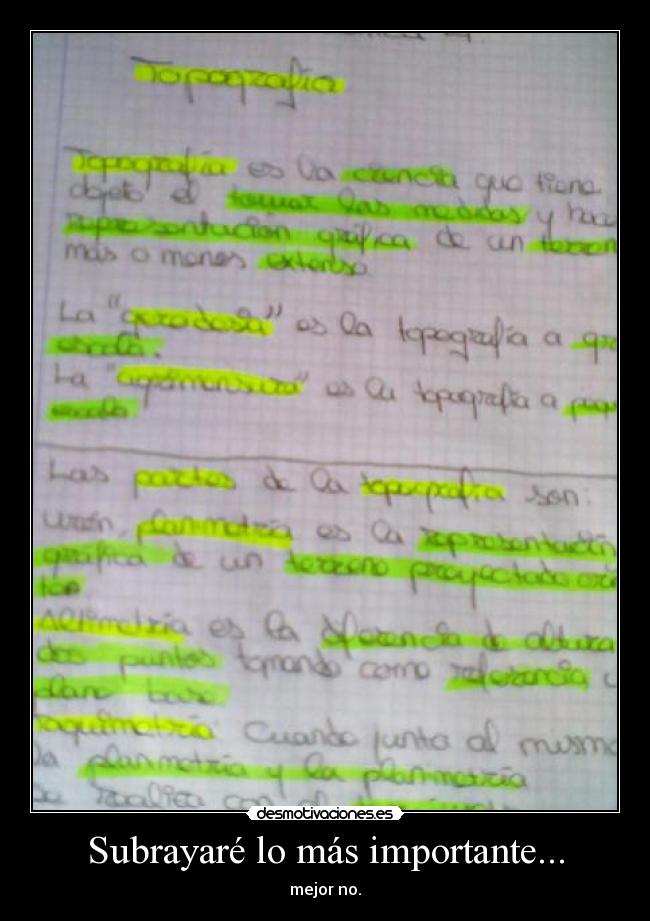 Topografía
Topografía es la ciencia que tiene
objeto el tomar las medidas y hace
representación gráfica de un terren
más o menos extenso
La "geodesia" es la topografía a gr
escala.
La "agrimensura" es la topografía a peq
escala
Las partes de la topografía son:
planimetría es la representación
gráfica de un terreno proyectado
Altimetría es la diferencia de altura
dos puntos tomando como referencia
plano base
Taquimetría: Cuando junta al mismo
la planimetría y la planimetría
desmotivaciones.es
Subrayaré lo más importante...
mejor no.